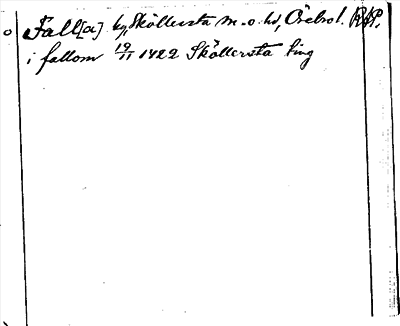 Fall[a] by, Sköllersta sn. o. hd, Örebro l. RAP.
i fallom 19/11 1422 Sköllersta ting